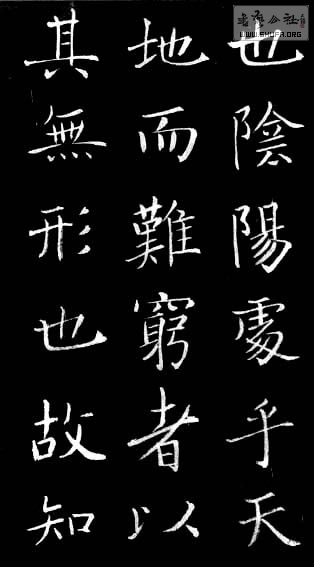 書法公社
WWW.SHUFA.ORG
也陰陽處乎天
地而難窮者以
其無形也故知